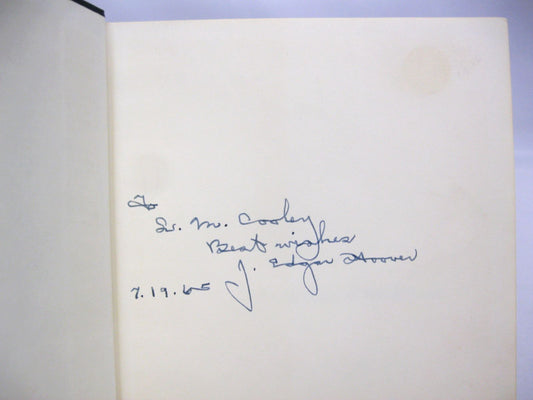 To
L. M. Cooley
Best wishes
J. Edgar Hoover
7.19.65